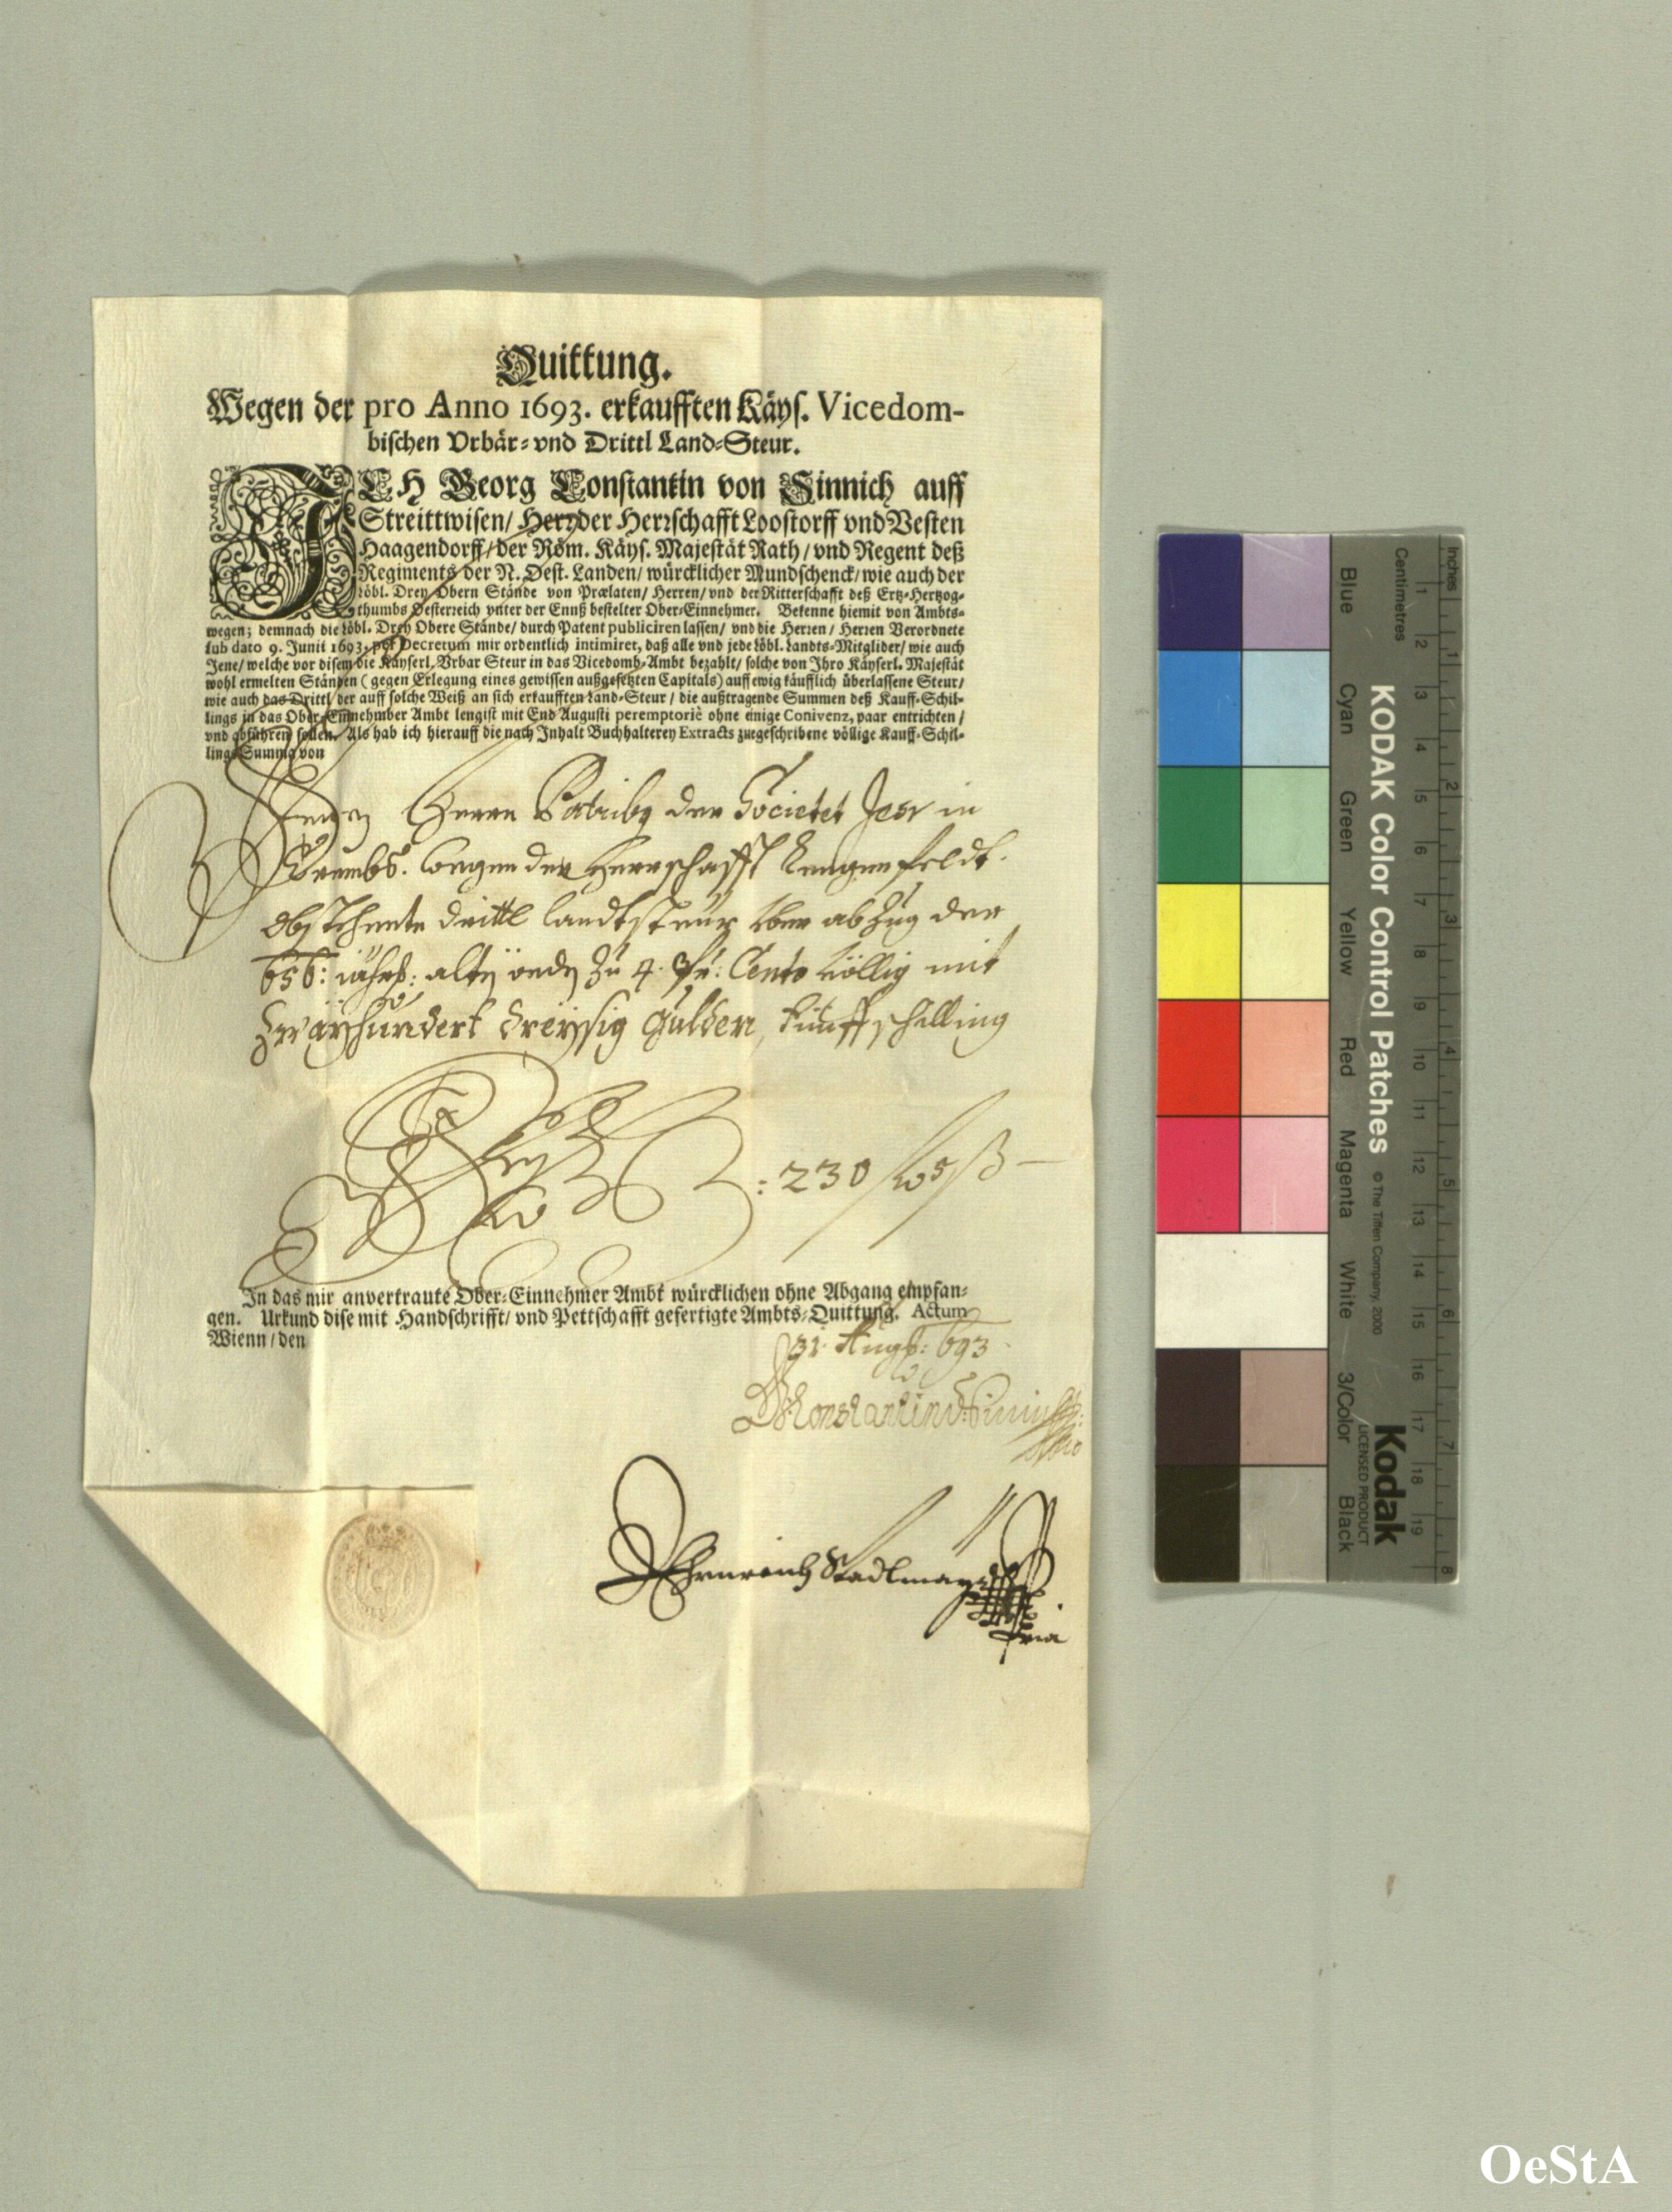 Quittung.
Wegen der pro Anno 1693. erkaufften Käys. Vicedom-
bischen Vrbär- vnd Drittl Land-Steur.
ICH Georg Constantin von Sinnich auff
Streittwisen/ Herr der Herrschafft Loostorff vnd Vesten
Haagendorff/ der Röm. Käys. Majestät Rath/ vnd Regent deß
Regiments der N. Oest. Landen/ würcklicher Mundschenck/ wie auch der
löbl. Drey Obern Stände von Prælaten/ Herren/ vnd der Ritterschafft deß Ertz-Hertzog-
thumbs Oesterreich vnter der Ennß bestelter Ober-Einnehmer. Bekenne hiemit von Ambts-
wegen; demnach die löbl. Drey Obere Stände/ durch Patent publiciren lassen/ vnd die Herren/ Herren Verordnete
sub dato 9. Junii 1693. per Decretum mir ordentlich intimiret, daß alle vnd jede löbl. Landts-Mitglider/ wie auch
Jene/ welche vor disem die Käyserl. Vrbar Steur in das Vicedomb-Ambt bezahlt/ solche von Ihro Käyserl. Majestät
wohl ermelten Ständen (gegen Erlegung eines gewissen außgesetzten Capitals) auff ewig käufflich überlassene Steur/
wie auch das Drittl der auff solche Weiß an sich erkaufften Land-Steur/ die außtragende Summen deß Kauff-Schil-
lings in das Ober-Einnehmber Ambt lengist mit End Augusti peremptoriè ohne einige Conivenz, paar entrichten/
vnd abführen sollen. Als hab ich hierauff die nach Inhalt Buchhalterey Extracts zuegeschribene völlige Kauff-Schil-
lings Summa von
Herrn Patribus der Societet Jesu in
Crembs. wegen der Herrschafft Lengenfeldt.
drittl landtsteur über abzug der
656: alten zu 4. Pr: Cento völlig mit
Zwayhundert dreyssig Gulden, fünff schilling
: 230 / 5 / ß —
In das mir anvertraute Ober-Einnehmer Ambt würcklichen ohne Abgang empfan-
gen. Urkund dise mit Handschrifft/ vnd Pettschafft gefertigte Ambts-Quittung. Actum
Wienn/ den
31. Aug: 693
Constantin v. Sinnich
Stadlmayr
Inches
Centimetres
1 2 3 4 5 6 7 8
1 2 3 4 5 6 7 8 9 10 11 12 13 14 15 16 17 18 19
KODAK Color Control Patches © The Tiffen Company, 2000
Kodak
LICENSED PRODUCT
Blue Cyan Green Yellow Red Magenta White 3/Color Black
OeStA